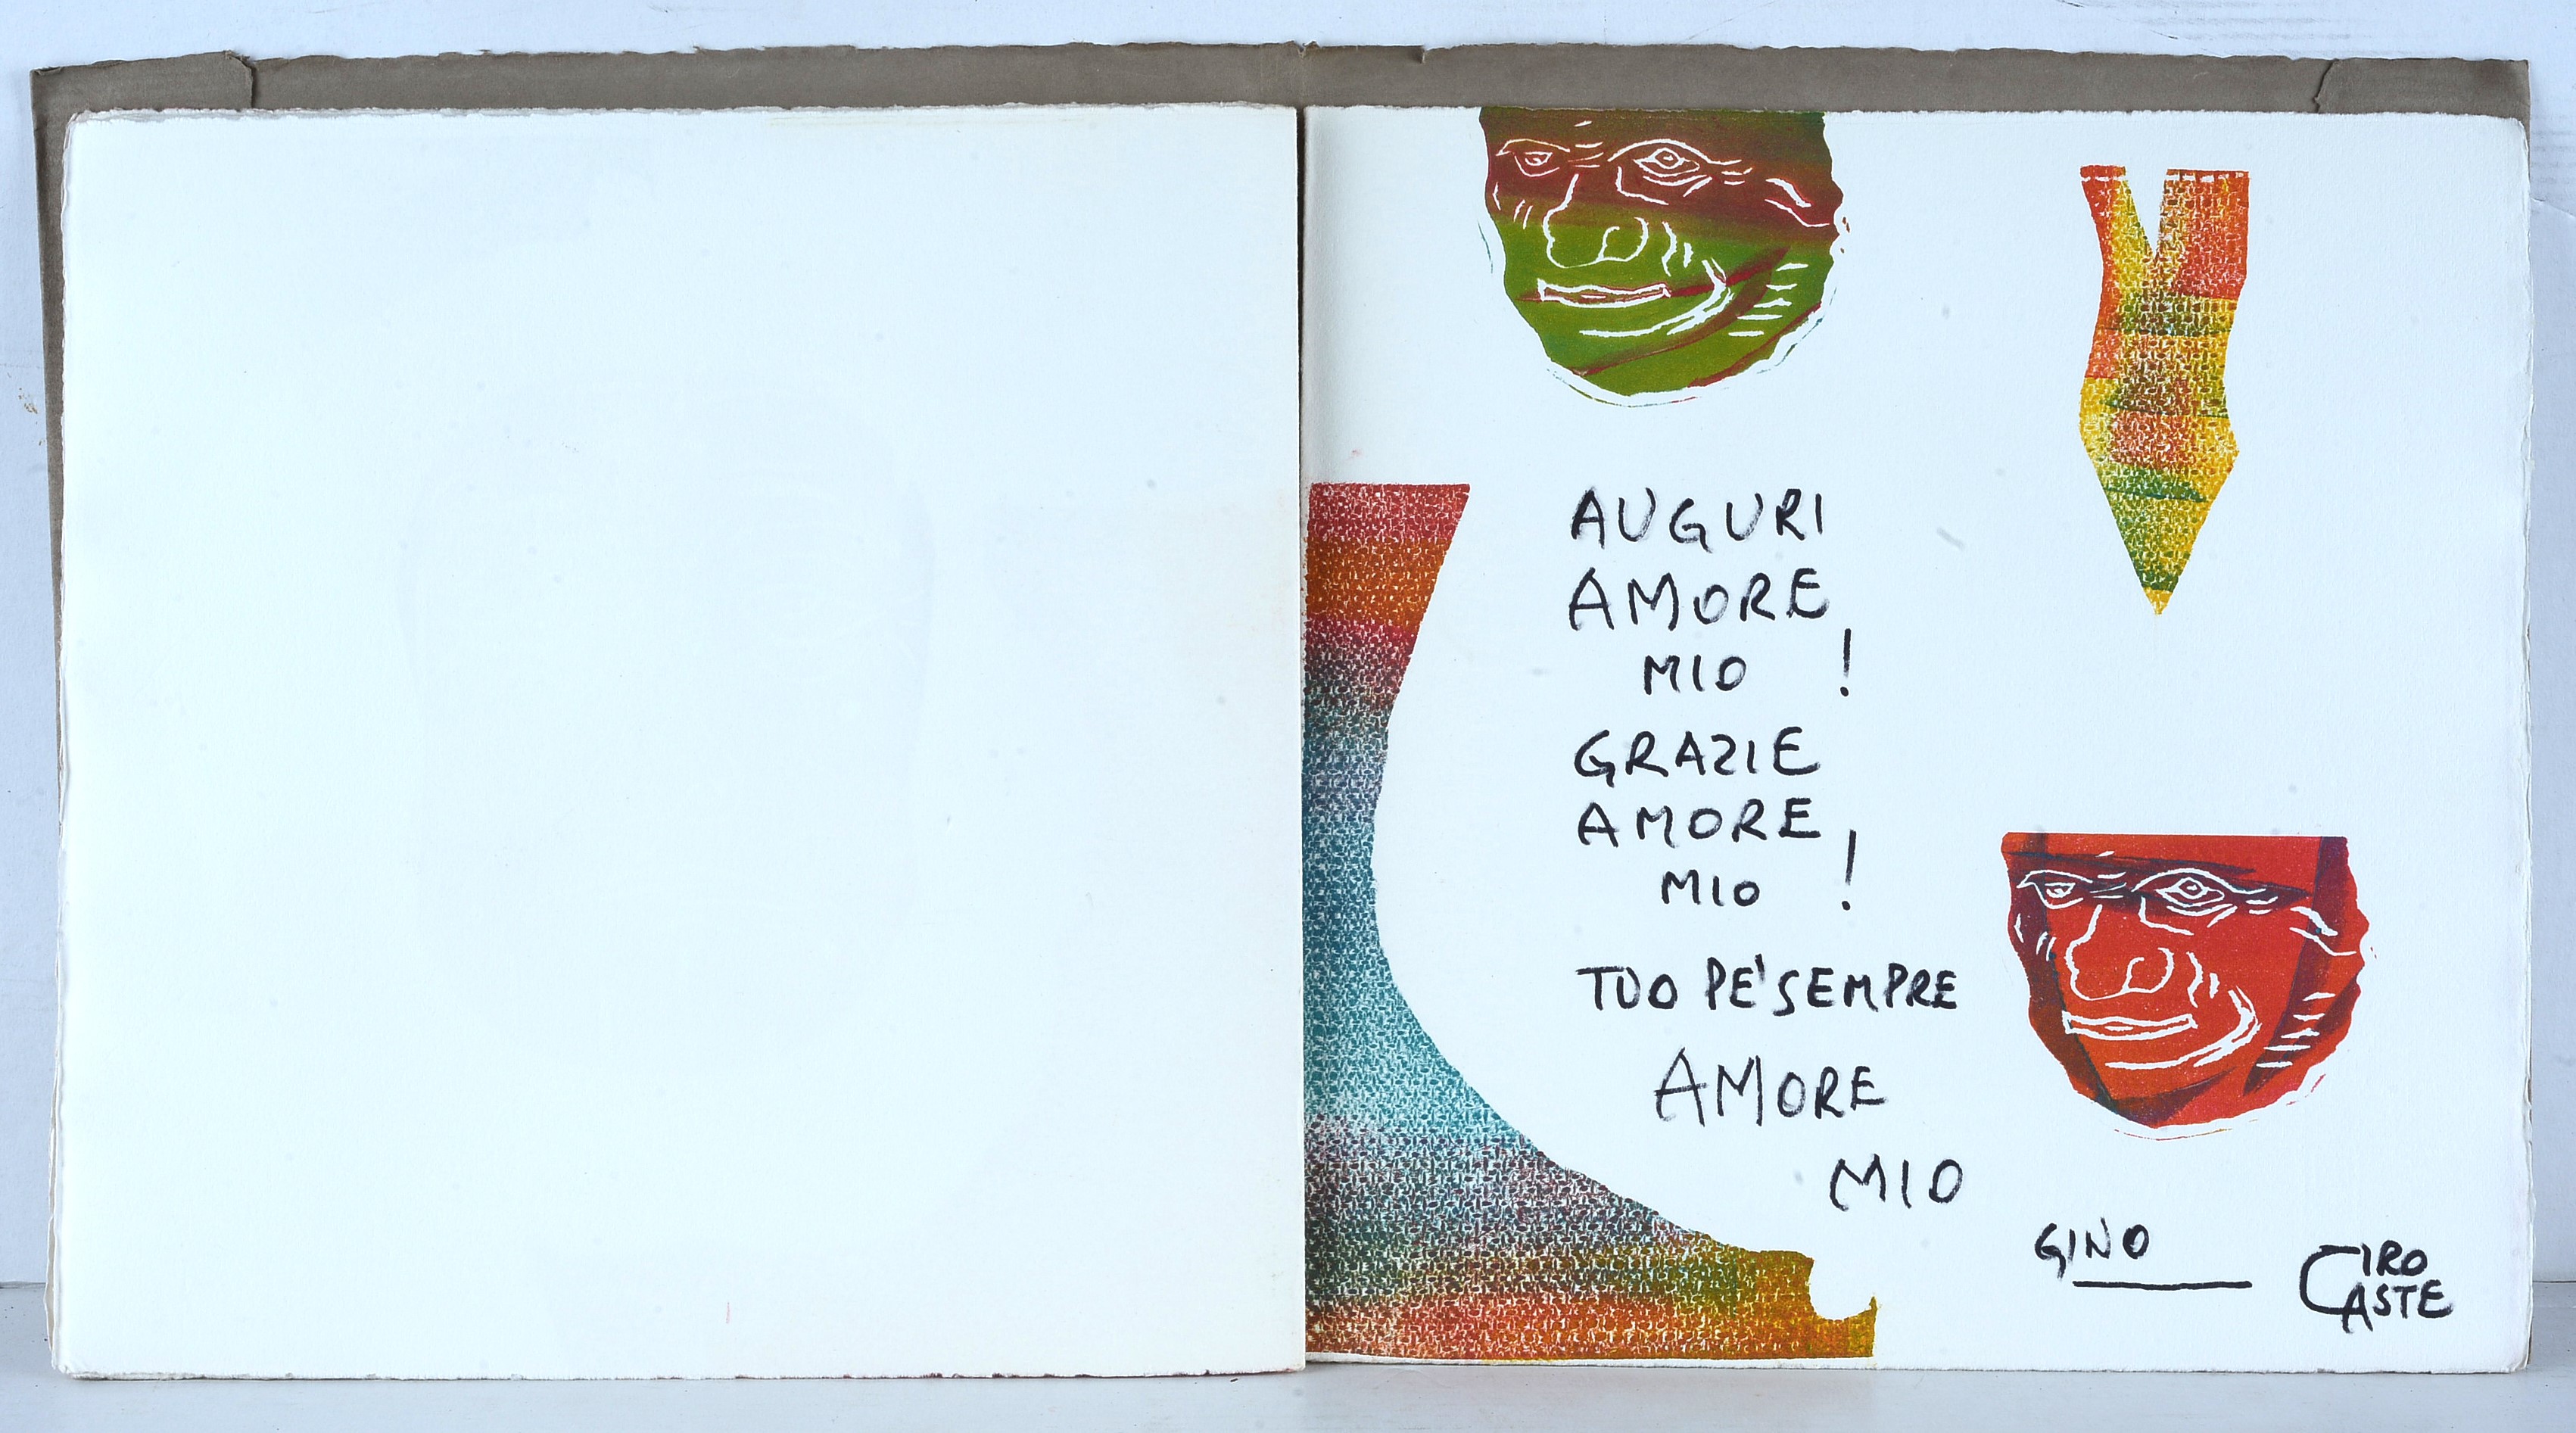 AUGURI
AMORE
MIO !
GRAZIE
AMORE
MIO !
TUO PE'SEMPRE
AMORE
MIO
GINO
CIRO
CASTE